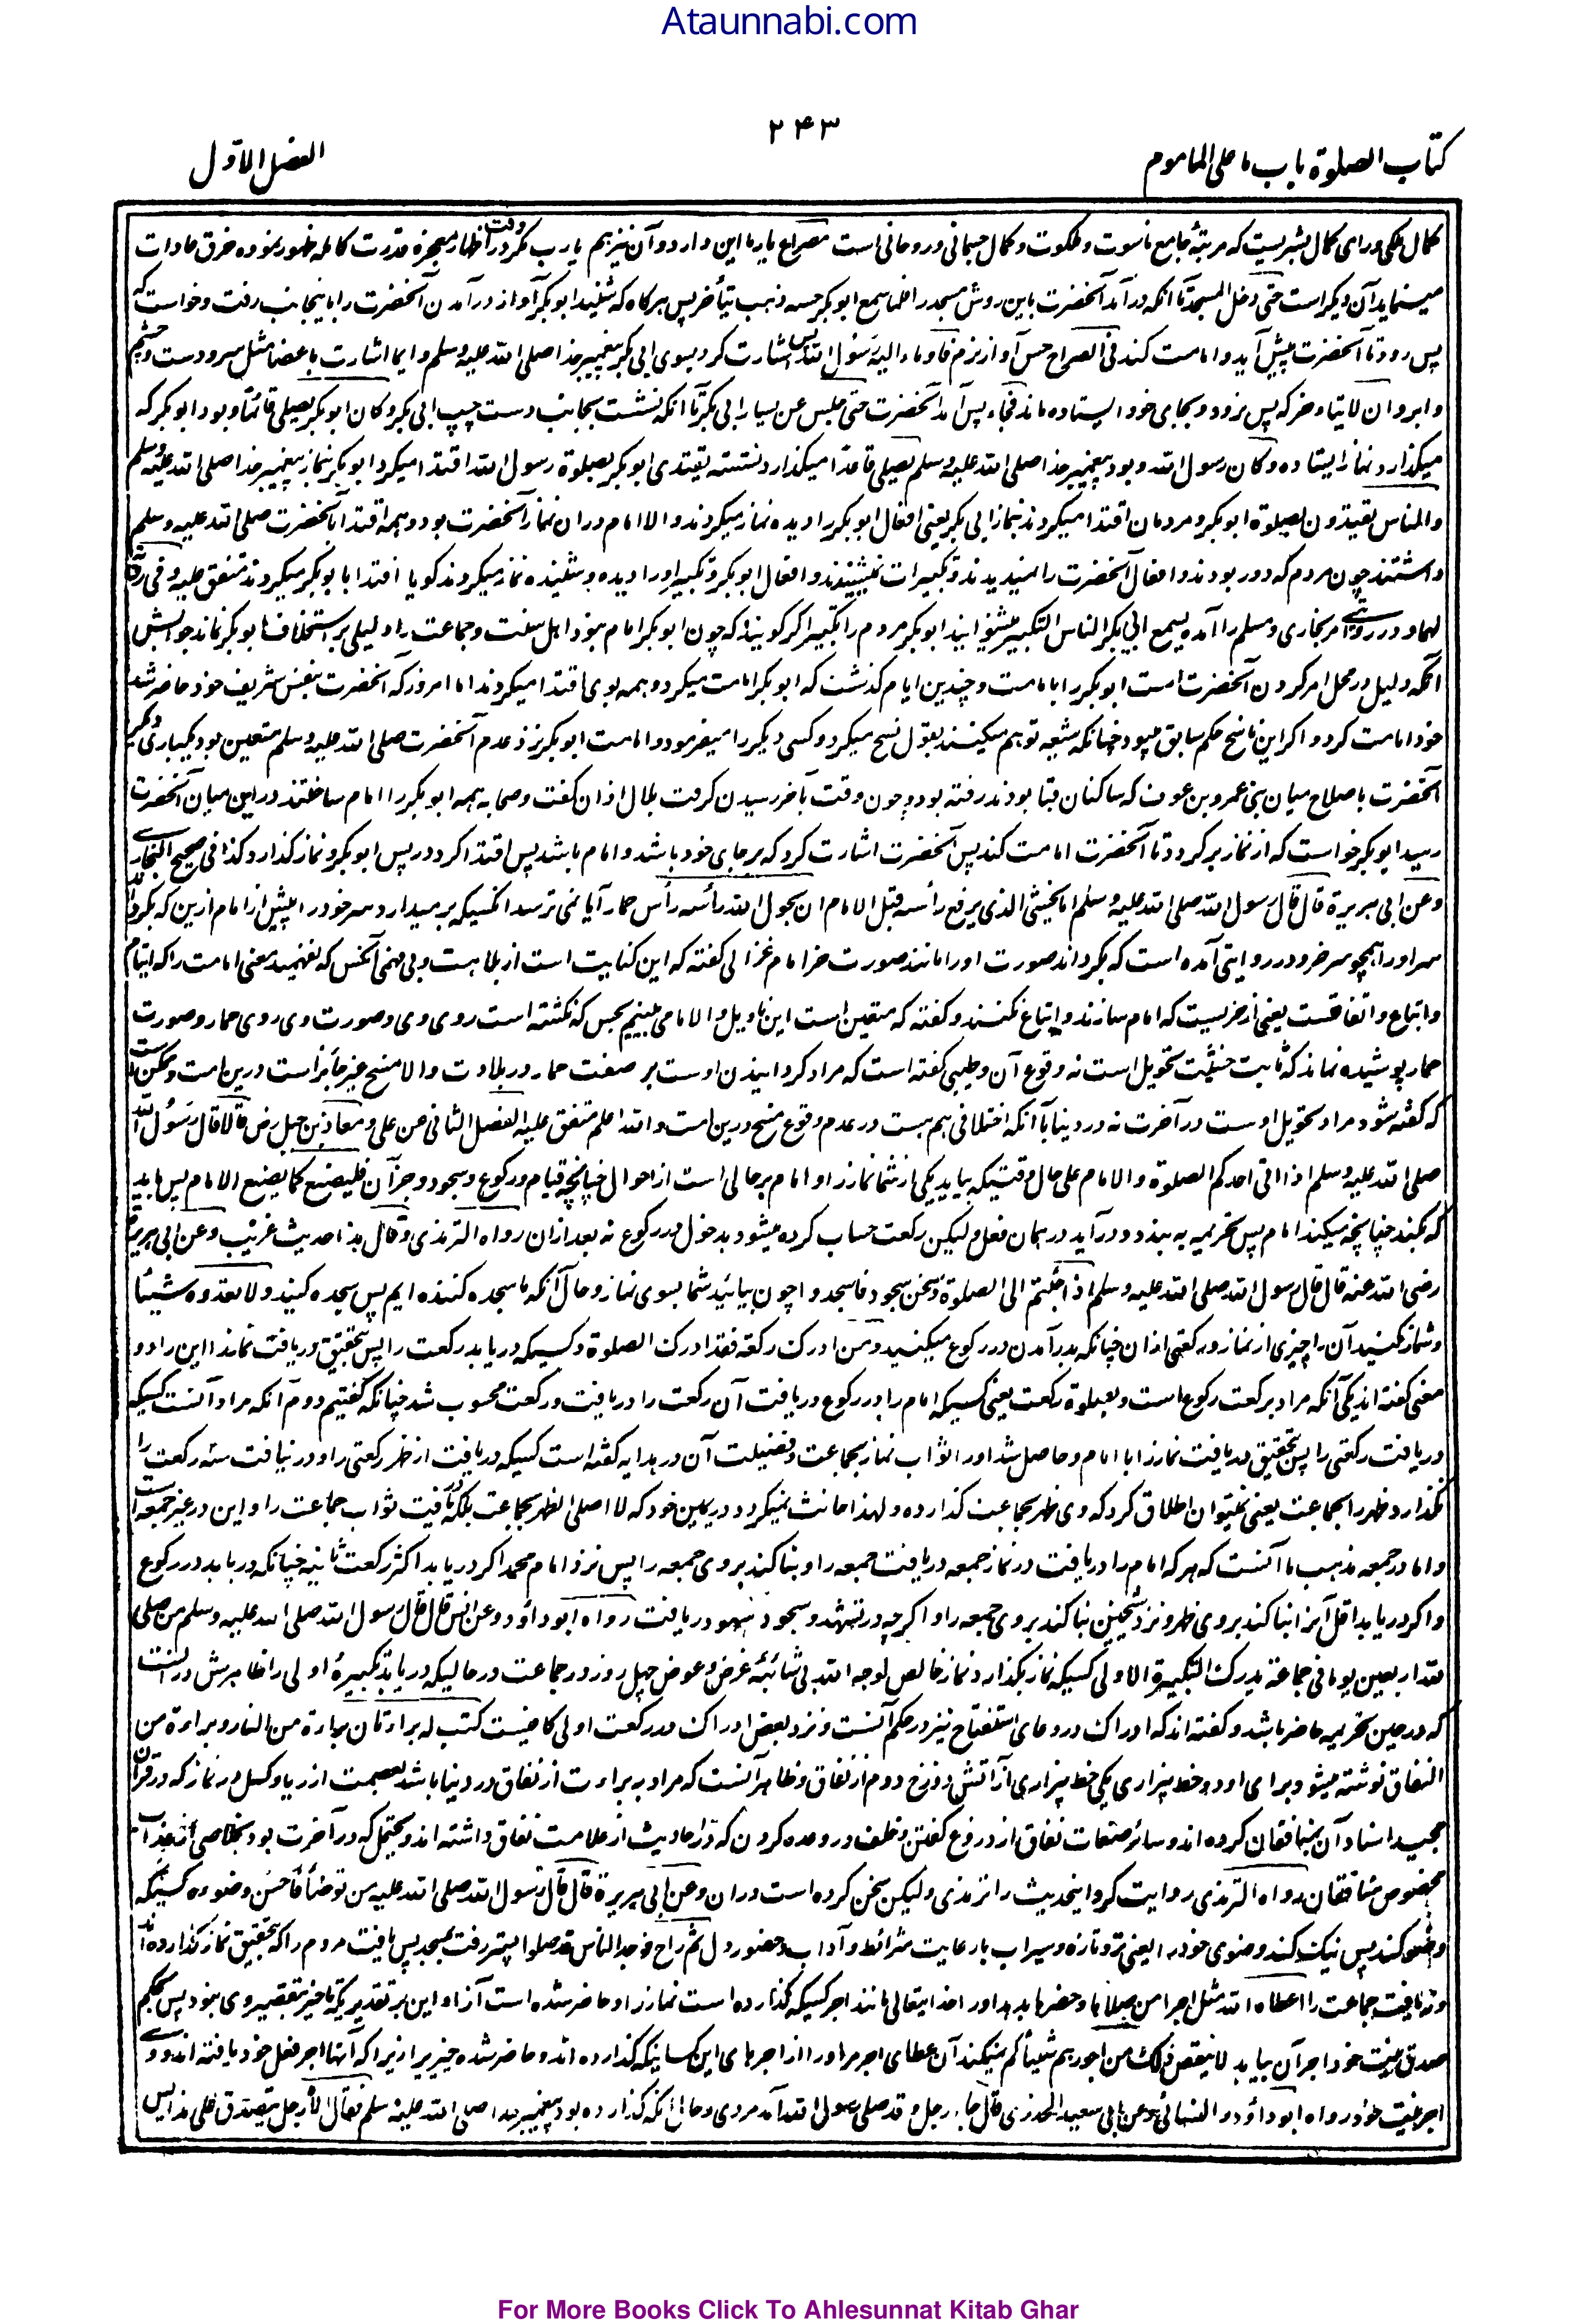 Ataunnabi.com
۲۴۳
کتاب الصلوة باب ما علی الماموم
الفصل الاول
کمال ملکی ورای کمال بشریست که مرتبهٔ جامع ناسوت و ملکوت و کمال جسمانی و روحانی است مصراع یار ما این دارد و آن نیز هم یا رب مگر در وقت اظهار معجزه قدرت کامله ظهور نموده خرق عادات
مینماید آن دیگر است حتی دخل المسجد تا آنکه درآمد آنحضرت باین روش مسجد را فلما سمع ابوبکر حسه ذهب یتأخر پس هرگاه که شنید ابوبکر آواز درآمدن آنحضرت را باینجانب رفت وخواست که
پس رود تا آنحضرت پیش آید و امامت کند فی الصراح حس آواز نرم فاوماء الیه رسول الله پس اشارت کرد بسوی ابی بکر پیغمبر خدا صلی الله علیه وسلم و ایما اشارت باعضا مثل سر و دست و چشم
و ابرو ان لا یتاخر که پس نرود و بجای خود ایستاده ماند فجاء پس آمد آنحضرت حتی جلس عن یسار ابی بکر تا آنکه نشست بجانب دست چپ ابی بکر و کان ابوبکر یصلی قائما و بود ابوبکر که
میگذارد نماز ایستاده و کان رسول الله و بود پیغمبر خدا صلی الله علیه وسلم یصلی قاعدا میگذارد نشسته یقتدی ابوبکر بصلوة رسول الله اقتدا میکرد ابوبکر بنماز پیغمبر خدا صلی الله علیه وسلم
والناس یقتدون بصلوة ابوبکر و مردمان اقتدا میکردند بنماز ابی بکر یعنی افعال ابوبکر را دیده نماز میکردند والا امام دران نماز آنحضرت بود و همه اقتدا بآنحضرت صلی الله علیه وسلم
داشتند چون مردم که دور بودند و افعال آنحضرت را نمیدیدند و تکبیرات نمیشنیدند و افعال ابوبکر و تکبیر او را دیده و شنیده نماز میکردند گویا اقتدا بابوبکر میکردند متفق علیه و فی روایة
لهما و در روایتی مر بخاری و مسلم را آمده یسمع ابی بکر الناس التکبیر میشنوانید ابوبکر مردم را تکبیر اگر گویند که چون ابوبکر امام نبود اهل سنت و جماعت را دلیلی بر استخلاف ابوبکر نماند جوابش
آنکه دلیل در محل امر کردن آنحضرت است ابوبکر را بامامت و چندین ایام گذشت که ابوبکر امامت میکرد و همه بوی اقتدا میکردند اما امروز که آنحضرت بنفس شریف خود حاضر شد
خود امامت کرد و اگر این ناسخ حکم سابق میبود چنانکه شیعه توهم میکنند بقول نسخ میکرد و کسی دیگر را میفرمود و امامت ابوبکر نزد عدم آنحضرت صلی الله علیه وسلم متعین بود یکباری دیگر
آنحضرت باصلاح میان بنی عمرو بن عوف که ساکنان قبا بودند رفته بود و چون وقت بآخر رسیدن گرفت بلال اذان گفت و صحابه همه ابوبکر را امام ساختند در این میان آنحضرت
رسید ابوبکر خواست که از نماز برگردد تا آنحضرت امامت کند پس آنحضرت اشارت کرد که بر جای خود باشد و امام باشد پس اقتدا کرد در پس ابوبکر و نماز گذارد کذا فی صحیح البخاری
وعن ابی هریرة قال قال رسول الله صلی الله علیه وسلم اما یخشی الذی یرفع رأسه قبل الامام ان یحول الله رأسه رأس حمار آیا نمی ترسد آنکسیکه برمیدارد سر خود را پیش از امام ازین که بگرداند
سر او را همچو سر خر و در روایتی آمده است که بگرداند صورت او را مانند صورت خر امام غزالی گفته که این کنایت است از بلاهت و بی فهمی آنکس که نفهمید معنی امامت را که ایتمام
و اتباع و اتفاقست یعنی از خریست که امام سازند و اتباع نکنند و گفته که متعین است این تاویل والا ما می بینیم بحس که نگشته است روی وی و صورت وی روی حمار و صورت
حمار پوشیده نماند که ثابت خشیت تحویل است نه وقوع آن و طیبی گفته است که مراد گردانیدن اوست بر صفت حمار در بلادت والا مسخ غیر جائز است درین امت و ممکن است
که گفته شود مراد تحویل اوست در آخرت نه در دنیا با آنکه اختلافی هم هست در عدم وقوع مسخ درین امت والله اعلم متفق علیه الفصل الثانی عن علی و معاذ بن جبل رض قالا قال رسول الله
صلی الله علیه وسلم اذا اتی احدکم الصلوة والامام علی حال وقتیکه بیاید یکی از شما نماز را و امام بر حالی است از احوال چنانچه قیام و رکوع و سجود و جز آن فلیصنع کما یصنع الامام پس باید
که بکند چنانچه میکند امام پس تحریمه به بندد و درآید در همان فعل و لیکن رکعت حساب کرده میشود بدخول در رکوع نه بعد ازان رواه الترمذی وقال هذا حدیث غریب وعن ابی هریرة
رضی الله عنه قال قال رسول الله صلی الله علیه وسلم اذا جئتم الی الصلوة ونحن سجود فاسجدوا چون بیائید شما بسوی نماز و حال آنکه ما سجده کننده ایم پس سجده کنید ولا تعدوه شیئا
و شمار نکنید آن را چیزی از نماز و رکعتی ازان چنانکه بدر آمدن در رکوع میکنید ومن ادرک رکعة فقد ادرک الصلوة و کسیکه دریابد رکعت را پس بتحقیق دریافت نماز را این را دو
معنی گفته اند یکی آنکه مراد برکعت رکوع است و بصلوة رکعت یعنی کسیکه امام را در رکوع دریافت آن رکعت را دریافت و رکعت محسوب شد چنانکه گفتیم دوم آنکه مراد آنست کسیکه
دریافت رکعتی را پس بتحقیق دریافت نماز را با امام و حاصل شد او را ثواب نماز بجماعت و فضیلت آن در هدایه گفته است کسیکه دریافت از ظهر رکعتی را و درنیافت سه رکعت را
نگذارد ظهر را بجماعت یعنی نمیتوان اطلاق کرد که وی ظهر بجماعت گذارده و لهذا حانث نمیگردد در یمین خود که لا اصلی الظهر بجماعت بلکه دریافت ثواب جماعت را و این در غیر جمعه است
و اما در جمعه مذهب ما آنست که هر که امام را دریافت در نماز جمعه دریافت جمعه را و بنا کند بر وی جمعه را پس نزد امام محمد اگر دریابد اکثر رکعت ثانیه چنانکه دریابد در رکوع
و اگر دریابد اقل آنرا بنا کند بر وی ظهر و نزد شیخین بنا کند بر وی جمعه را و اگرچه در تشهد و سجود سهو دریافت رواه ابوداؤد وعن انس قال قال رسول الله صلی الله علیه وسلم من صلی
لله اربعین یوما فی جماعة یدرک التکبیرة الاولی کسیکه نماز بگذارد نماز خالص لوجه الله بی شائبهٔ غرض و عوض چهل روز در جماعت در حالیکه دریابد تکبیرهٔ اولی را ظاهرش در آنست
که در حین تحریمه حاضر باشد و گفته اند که ادراک در دعای استفتاح نیز در حکم آنست و نزد بعض ادراک در رکعت اولی کافیست کتب له براءتان براءة من النار و براءة من
النفاق نوشته میشود برای او دو خط بیزاری یکی خط بیزاری از آتش دوزخ دوم از نفاق و ظاهر آنست که مراد به براءت از نفاق در دنیا باشد بعصمت از ریا و کسل در نماز که در قرآن
مجید اسناد آن بمنافقان کرده اند و سائر صفات نفاق از دروغ گفتن و خلف در وعده کردن که در احادیث از علامت نفاق داشته اند و یحتمل که در آخرت بود بخلاصی از عذاب
مخصوص منافقان رواه الترمذی روایت کرد اینحدیث را ترمذی و لیکن سخن کرده است دران وعن ابی هریرة قال قال رسول الله صلی الله علیه من توضأ فاحسن وضوءه کسیکه
وضو کند پس نیک کند وضوی خود را یعنی تر و تازه و سیراب بارعایت شرائط و آداب و حضور دل ثم راح فوجد الناس قد صلوا پستر رفت بمسجد پس یافت مردم را که بتحقیق نماز گذارده اند
و نیافت جماعت را اعطاه الله مثل اجر من صلاها و حضرها بدهد او را خدایتعالی مانند اجر کسیکه گذارده است نماز را و حاضر شده است آنرا و این بر تقدیریکه تاخیر بتقصیر وی نبود پس بحکم
صدق نیت خود اجر آن بیابد لا ینقص ذلک من اجورهم شیئا کم نمیکند آن عطای اجر مر او را از اجرهای این کسانیکه گذارده اند و حاضر شده چیزی را زیرا که آنها اجر فعل خود یافته اند و وی
اجر نیت خود رواه ابوداؤد والنسائی وعن ابی سعید الخدری قال جاء رجل وقد صلی رسول الله آمد مردی و حال آنکه گذارده بود پیغمبر خدا صلی الله علیه وسلم فقال الا رجل یتصدق علی هذا پس
For More Books Click To Ahlesunnat Kitab Ghar